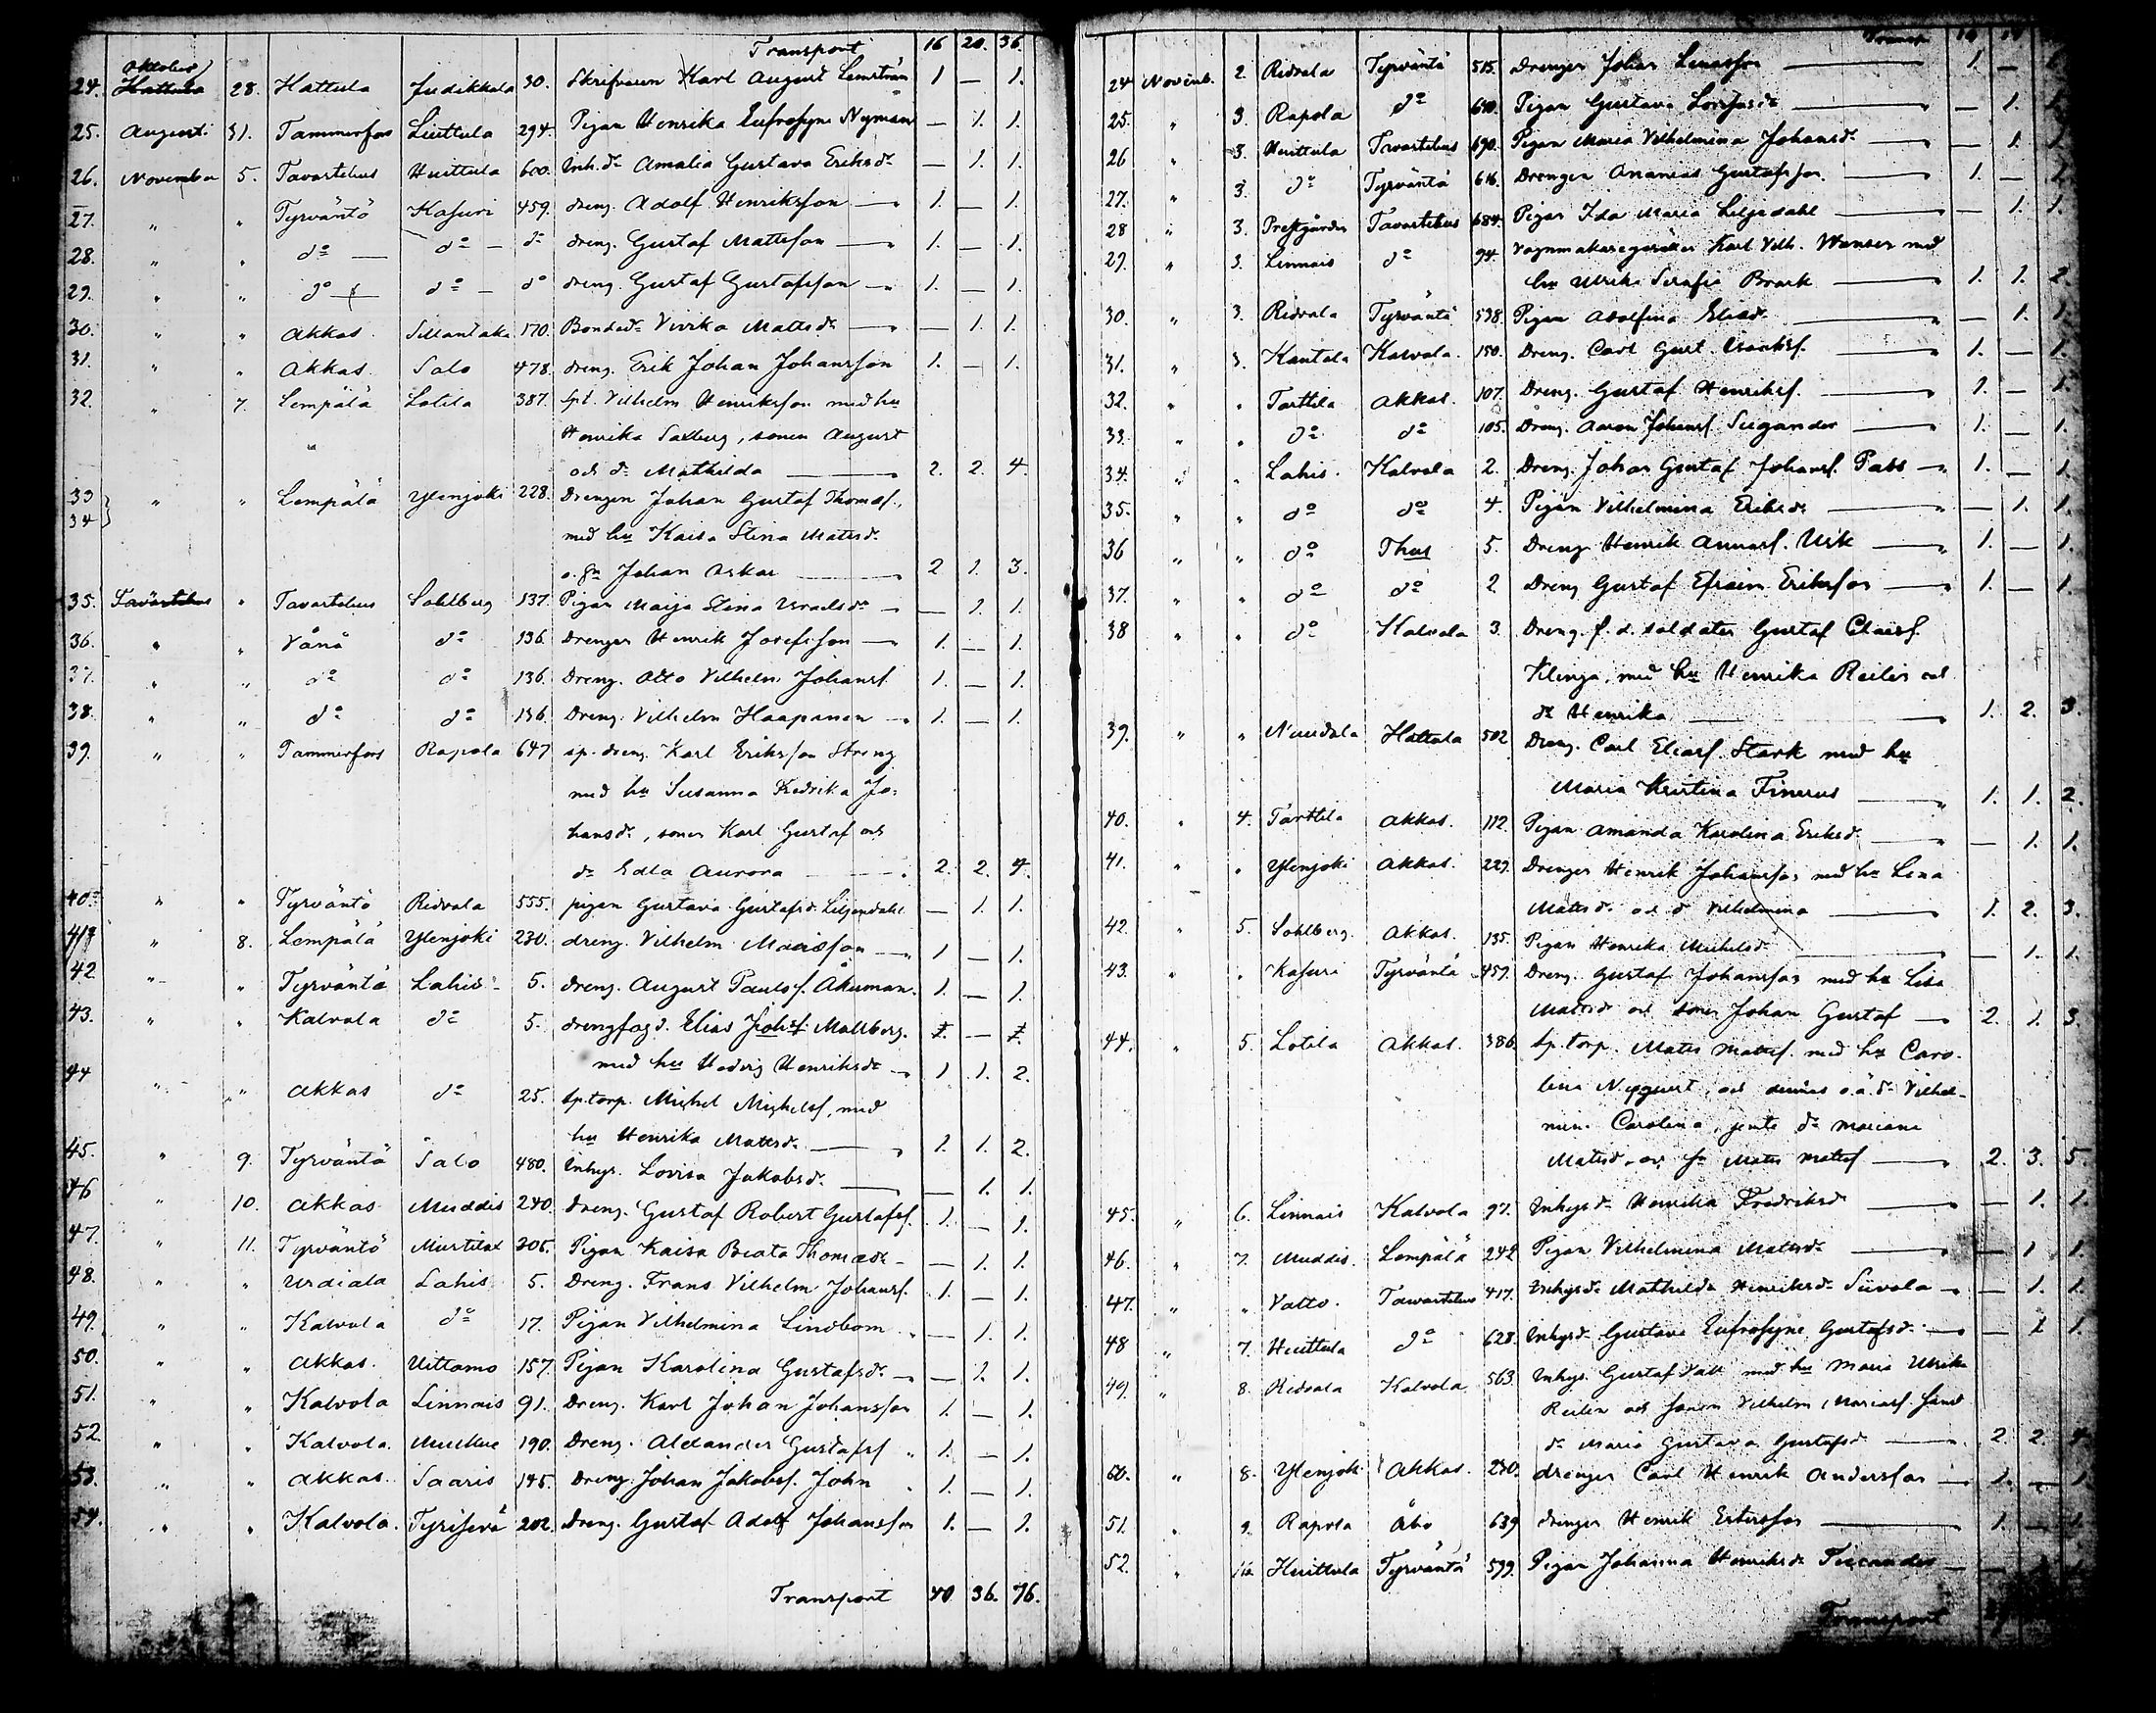 Transport 16 20. 36.
Oktober
24. Hattula 28. Hattula Judikkala 30. Skrifvaren Karl August Lemström 1 — 1.
25. Augusti 31. Tammerfors Liuttula 294. Pigan Henrika Eufrosyne Nyman — 1. 1.
26. November 5. Tavastehus Huittula 600. Inh.dr Amalia Gustava Eriksdr — 1. 1.
27. " " Tyrväntö Kasuri 459. dreng. Adolf Henriksson 1. — 1.
28. " " do do do dreng. Gustaf Mattsson 1. — 1.
29. " " do do do dreng. Gustaf Gustafsson 1. — 1.
30. " " Akkas Sillantaka 170. Bondedr Vivika Mattsdr — 1. 1.
31. " " Akkas Salo 478. dreng. Erik Johan Johansson 1. — 1.
32. " 7. Lempälä Lotila 387. Vilhelm Henriksson med hu
Henrika Saxberg, sonen August
och dr Mathilda 2. 2. 4.
33 34 } " " Lempälä Ylenjoki 228. Drengen Johan Gustaf Thomasf.,
med hu Kaisa Stina Mattsdr
o. sn Johan Oskar 2 1. 3.
35. Tavastehus " Tavastehus Sohlberg 137. Pigan Maija Stina Israelsdr — 1. 1.
36. " " Vånå do 136. Drengen Henrik Josefsson 1. — 1.
37. " " do do 136. Dreng. Otto Vilhelm Johansf. 1. — 1.
38. " " do do 136. Dreng. Vilhelm Haapanen 1. — 1.
39. " " Tammerfors Rapola 647 sp. dreng. Karl Eriksson Streng
med hu Susanna Fredrika Jo-
hansdr, sonen Karl Gustaf och
dr Edla Aurora 2. 2. 4.
40. " " Tyrväntö Ridvala 555. pigan Gustava Gustafsd. Liljendahl — 1. 1.
41. " 8. Lempälä Ylenjoki 230. dreng. Vilhelm Mariasson 1 — 1.
42 " " Tyrväntö Lahis 5. dreng. August Paulsf. Åkerman. 1. — 1.
43. " " Kalvola do 5. drengfogd. Elias Johsf. Mallberg. 1. — 1.
med hu Hedvig Henriksdr 1 1. 2.
44 " " Akkas do 25. sp.torp. Michel Michelsf, med
hu Henrika Mattsdr 1. 1. 2.
45. " 9. Tyrväntö Salo 480. Inhys. Lovisa Jakobsdr — 1. 1.
46 " 10. Akkas Muddis 240. dreng. Gustaf Robert Gustafsf. 1. — 1.
47. " 11. Tyrväntö Mustila 306. Pigan Kaisa Beata Thomasdr — 1. 1.
48. " " Urdiala Lahis 5. Dreng. Frans Vilhelm Johansf. 1. — 1.
49. " " Kalvola do 17. Pigan Vilhelmina Lindbom — 1. 1.
50. " " Akkas. Uittamo 157. Pigan Karolina Gustafsdr — 1. 1.
51. " " Kalvola Linnais 91. Dreng. Karl Johan Johansson 1. — 1.
52. " " Kalvola. 190. Dreng. Alexander Gustafsf 1. — 1.
53. " " Akkas. Saaris 145. Dreng. Johan Jakobsf. John 1. — 1.
54. " " Kalvola. 202. Dreng. Gustaf Adolf Johansson 1. — 1.
Transport 40. 36. 76.
Transp.
24 Novemb. 2 Ridvala Tyrväntö 515. Drengen Johan 1. —
25. " 3. Rapola do 650. Pigan Gustava — 1.
26 " 3. Huittula Tavastehus 690. Pigan Maria Vilhelmina Johansdr — 1. 1.
27. " 3. do Tyrväntö 616. Drengen Ananias Gustafsson 1. —
28 " 3. Prestgården Tavastehus 684. Pigan Ida Maria Liljedahl — 1. 1.
29. " 3. Linnais do 94. Vagnmakaregesällen Karl Vilh. med
hu Ulrika Serafia Brark 1. 1. 2.
30. " 3. Ridvala Tyrväntö 538. Pigan Adolfina Eliasdr — 1. 1.
31. " 3. Kantala Kalvola. 150. Dreng. Carl Gust. Isaaksf. 1. — 1.
32. " " Tarttila Akkas. 107. Dreng. Gustaf Henriksf. 1. — 1.
33. " " do do 105. Dreng. Aaron Johansf. 1. — 1.
34. " " Lahis. Kalvola 2. Dreng. Johan Gustaf Johansf. 1. — 1.
35. " " do do 4. Pigan Vilhelmina Eriksdr — 1. 1.
36 " " do Thus 5. Dreng Henrik Annasf. 1. — 1.
37. " " do do 2 Dreng Gustaf Efraim Eriksson 1. — 1.
38 " " do Kalvola 3. Dreng. f. d. soldaten Gustaf
Klinga, med hu Henrika och
dr Henrika 1. 2. 3.
39. " " Hattula 502 Dreng. Carl Eliasf. Stark med hu
Maria Kristina 1. 1. 2.
40. " 4. Tarttila Akkas. 112. Pigan Amanda Karolina Eriksd. — 1. 1.
41. " " Ylenjoki Akkas. 229. Drengen Henrik Johansson med hu Lena
Mattsd. och d Vilhelmina 1. 2. 3.
42. " 5. Sohlberg. Akkas. 135. Pigan Henrika Michelsdr — 1. 1.
43. " " Kasuri Tyrväntö 457. Dreng. Gustaf Johansson med hu Lisa
Mattsd och sonen Johan Gustaf 2. 1. 3.
44. " 5. Lotila Akkas. 386. sp.torp. Matts Mattsf. med hu Caro-
lina och dennes o.ä. dr Vilhel-
min. Carolina, dr Mariana
Mattsd. och sn Matts Mattsf 2. 3. 5.
45. " 6. Linnais Kalvola 97. Inhysdr Henrika Fredriksd — 1. 1.
46. " 7. Muddis. Lempälä 242 Pigan Vilhelmina Mattsdr — 1 1.
47. " " Valto. Tavastehus 417. Inhysdr Mathilda Henriksdr — 1. 1.
48 " 7. Huittula do 628. Inhysdr Gustava Eufrosyne Gustafsd. — 1 1.
49. " 8. Ridvala Kalvola 563. Inhys. Gustaf med hu Maria Ulrika
och sonen Vilhelm
dr Maria Gustava Gustafsd 2. 2. 4.
50. " 8. Ylenjoki Akkas. 230. drengen Carl Henrik Andersson 1. — 1.
51. " 9. Rapola Åbo 639 drengen Henrik 1. —
52. " Huittula Tyrväntö 599. Pigan Johanna Henriksdr —
Transport